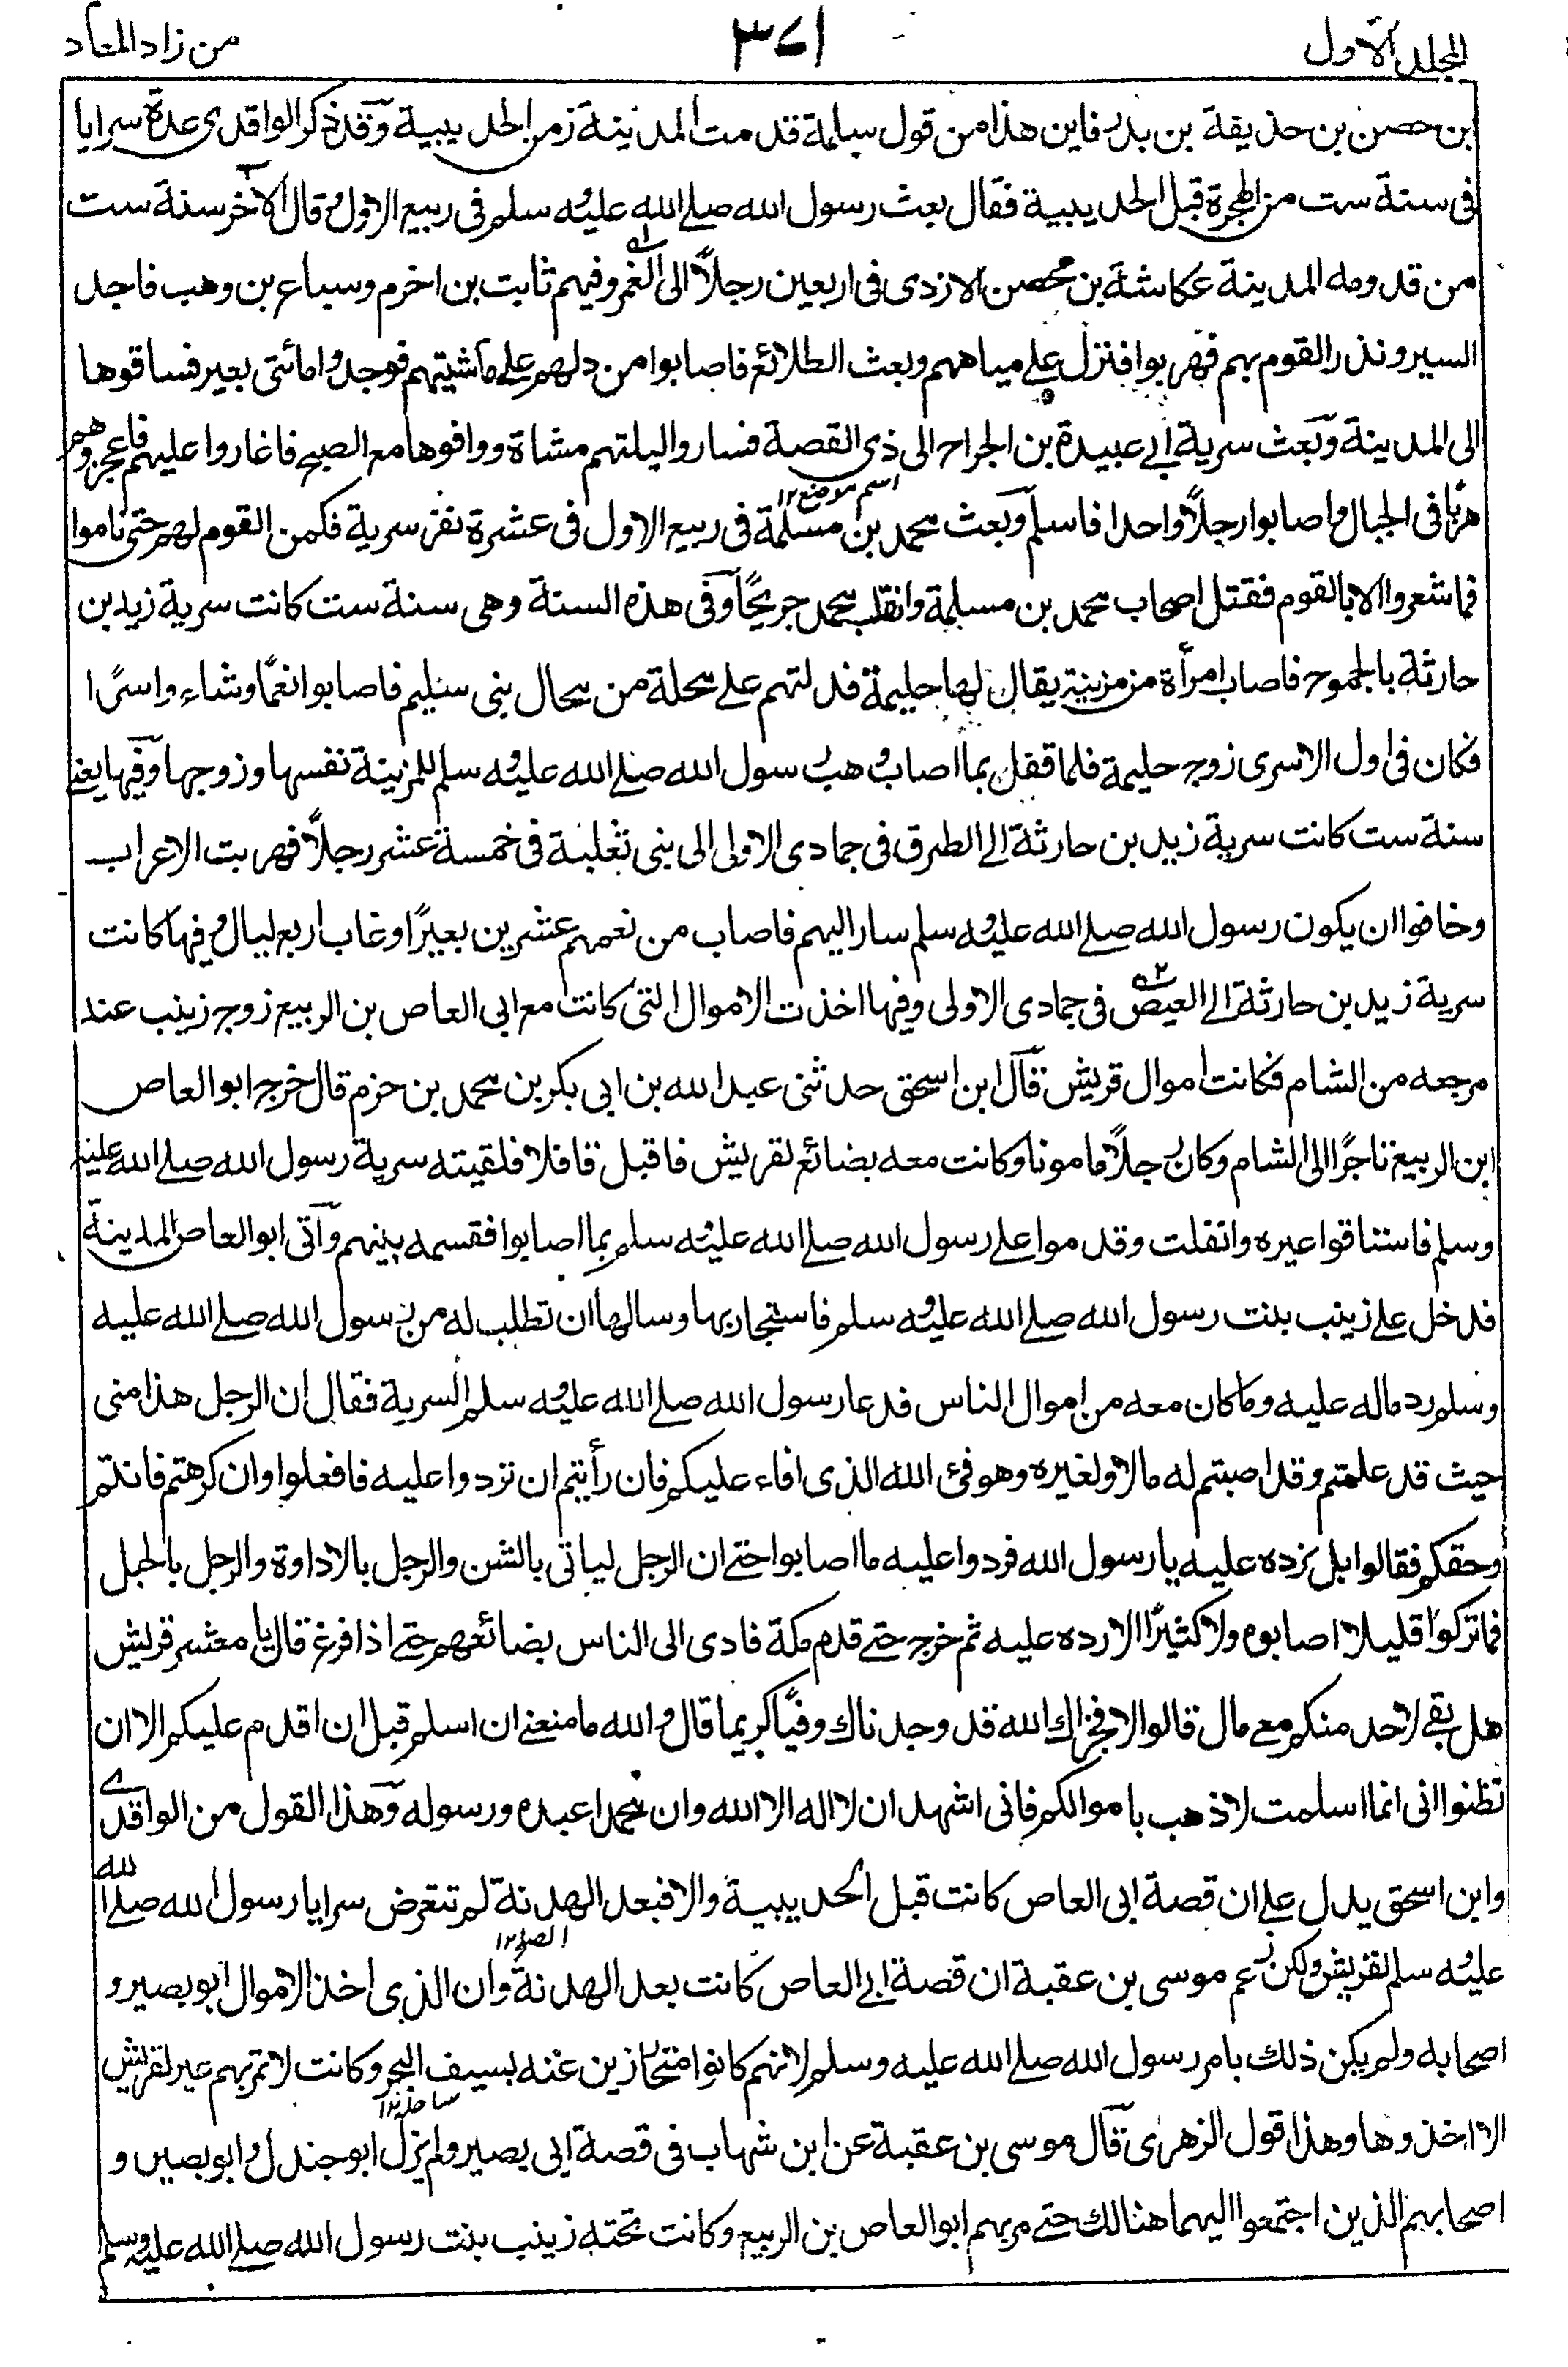 المجلد الاول
٣٧١
من زاد المعاد
ابن حصن بن حذيفة بن بدر فاين هذا من قول سلمة قدمت المدينة زمن الحديبية وقد ذكر الواقدى عدة سرايا
فى سنة ست من الهجرة قبل الحديبية فقال بعث رسول الله صلے الله عليه وسلم فى ربيع الاول او قال الاخر سنة ست
من قدومه المدينة عكاشة بن محصن الازدى فى اربعين رجلاً الى الغمر وفيهم ثابت بن اخرم وسباع بن وهب فاجد
السير ونذر القوم بهم فهربوا فنزل علے مياههم وبعث الطلائع فاصابوا من دلهم علے ماشيتهم فوجدوا مائتى بعير فساقوها
الى المدينة وبعث سرية ابے عبيدة بن الجراح الى ذى القصة فساروا ليلتهم مشاة ووافوها مع الصبح فاغاروا عليهم فاعجزوهم
اسم موضع ١٢
هربا فى الجبال واصابوا رجلاً واحدا فاسلم وبعث محمد بن مسلمة فى ربيع الاول فى عشرة نفر سرية فكمن القوم لهم حتى ناموا
فما شعروا الا بالقوم فقتل اصحاب محمد بن مسلمة وانفلت محمد جريحًا وفى هذه السنة وهى سنة ست كانت سرية زيد بن
حارثة بالجموح فاصاب امرأة من مزينة يقال لها حليمة فدلتهم علے محلة من محال بنى سليم فاصابوا نعمًا وشاء واسرًا
فكان فى اول الاسرى زوج حليمة فلما قفل بما اصاب وهب رسول الله صلے الله عليه وسلم للمزينة نفسها وزوجها وفيها يعنے
سنة ست كانت سرية زيد بن حارثة الے الطرق فى جمادى الاولى الى بنى ثعلبة فى خمسة عشر رجلاً فهربت الاعراب
وخافوا ان يكون رسول الله صلے الله عليه وسلم سار اليهم فاصاب من نعمهم عشرين بعيرًا وغاب اربع ليال وفيها كانت
سرية زيد بن حارثة الے العيص فى جمادى الاولى وفيها اخذت الاموال التى كانت مع ابى العاص بن الربيع زوج زينب عند
مرجعه من الشام فكانت اموال قريش قال ابن اسحق حدثنى عبد الله بن ابى بكر بن محمد بن حزم قال خرج ابو العاص
ابن الربيع تاجرًا الى الشام وكان رجلاً مامونا وكانت معه بضائع لقريش فاقبل قافلا فلقيته سرية رسول الله صلے الله عليه
وسلم فاستاقوا عيره وانفلت وقدموا علے رسول الله صلے الله عليه وسلم بما اصابوا فقسمه بينهم واتى ابو العاص المدينة
فدخل علے زينب بنت رسول الله صلے الله عليه وسلم فاستجار بها وسالها ان تطلب له من رسول الله صلے الله عليه
وسلم رد ماله عليه وما كان معه من اموال الناس فدعا رسول الله صلے الله عليه وسلم السرية فقال ان الرجل هذا منى
حيث قد علمتم وقد اصبتم له مالا ولغيره وهو فئ الله الذى افاء عليكم فان رأيتم ان تردوا عليه فافعلوا وان كرهتم فانتم
وحقكم فقالوا بل نرده عليه يا رسول الله فردوا عليه ما اصابوا حتے ان الرجل لياتى بالشن والرجل بالاداوة والرجل بالحبل
فما تركوا قليلا اصابوه ولا كثيرًا الا رده عليه ثم خرج حتے قدم مكة فادى الى الناس بضائعهم حتے اذا فرغ قال يا معشر قريش
هل بقے لاحد منكم معے مال قالوا لا فجزاك الله قد وجدناك وفيًا كريما قال والله ما منعنے ان اسلم قبل ان اقدم عليكم الا ان
تظنوا انى انما اسلمت لاذهب باموالكم فانى اشهد ان لا اله الا الله وان محمدا عبده ورسوله وهذا القول من الواقدے
وابن اسحق يدل علے ان قصة ابى العاص كانت قبل الحديبية والا فبعد الهدنة لم تتعرض سرايا رسول الله صلے الله
الصلح ١٢
عليه وسلم لقريش ولكن زعم موسى بن عقبة ان قصة ابے العاص كانت بعد الهدنة وان الذى اخذ الاموال ابو بصير و
اصحابه ولم يكن ذلك بامر رسول الله صلے الله عليه وسلم لانهم كانوا منحازين عنه بسيف البحر وكانت لا تمر بهم عير لقريش
ساحل ١٢
الا اخذوها وهذا قول الزهرى قال موسى بن عقبة عن ابن شهاب فى قصة ابى بصير ولم يزل ابو جندل وابو بصير و
اصحابهم الذين اجتمعوا اليهما هنالك حتے مر بهم ابو العاص بن الربيع وكانت تحته زينب بنت رسول الله صلے الله عليه وسلم